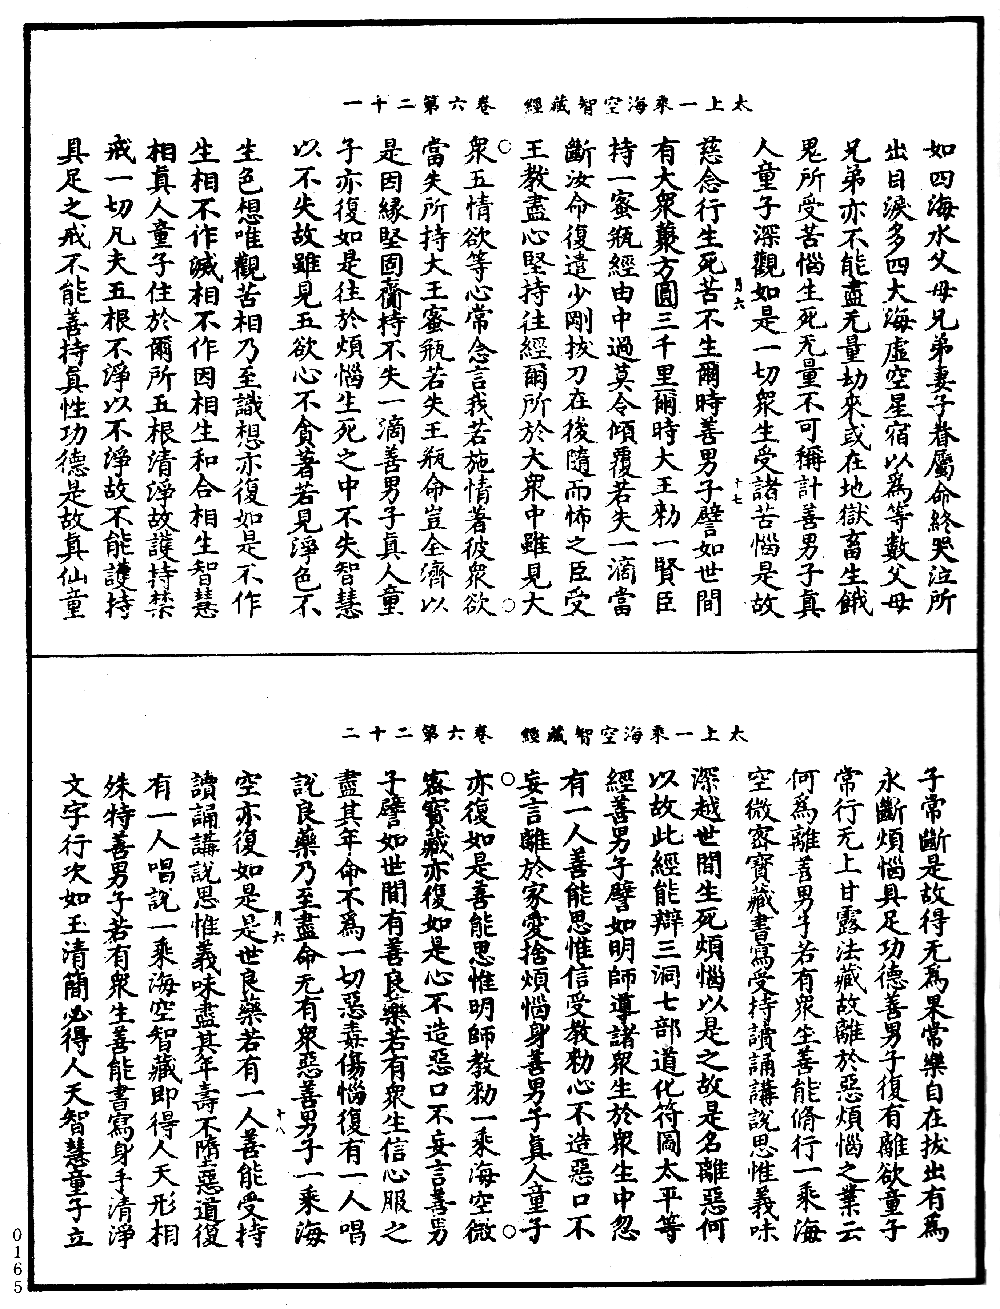 太上一乗海空智藏經　卷六第二十一
如四海水父母兄弟妻子眷屬命終哭泣所
出目淚多四大海虛空星宿以為等數父母
兄弟亦不能盡无量劫來或在地獄畜生餓
鬼所受苦惱生死无量不可稱計善男子真
人童子深觀如是一切衆生受諸苦惱是故
月六　十七
慈念行生死苦不生爾時善男子譬如世間
有大衆藂方圓三千里爾時大王勑一賢臣
持一蜜瓶經由中過莫令傾覆若失一滴當
斷汝命復遣少剛拔刀在後隨而怖之臣受
王教盡心堅持往經爾所於大衆中雖見大
衆五情欲等心常念言我若施情著彼衆欲
當失所持大王蜜瓶若失王瓶命豈全濟以
是因緣堅固齎持不失一滴善男子真人童
子亦復如是往於煩惱生死之中不失智慧
以不失故雖見五欲心不貪著若見淨色不
生色想唯觀苦相乃至識想亦復如是不作
生相不作滅相不作因相生和合相生智慧
相真人童子住於爾所五根清淨故護持禁
戒一切凡夫五根不淨以不淨故不能護持
具足之戒不能善持真性功德是故真仙童
太上一乗海空智藏經　卷六第二十二
子常斷是故得无為果常樂自在拔出有為
永斷煩惱具足功德善男子復有離欲童子
常行无上甘露法藏故離於惡煩惱之業云
何為離善男子若有衆生善能脩行一乘海
空微密寶藏書寫受持讀誦講說思惟義味
深越世間生死煩惱以是之故是名離惡何
以故此經能辯三洞七部道化符圖太平等
經善男子譬如明師導諸衆生於衆生中忽
有一人善能思惟信受教勑心不造惡口不
妄言離於家愛捨煩惱身善男子真人童子
亦復如是善能思惟明師教勑一乘海空微
密寶藏亦復如是心不造惡口不妄言善男
子譬如世間有善良藥若有衆生信心服之
盡其年命不為一切惡毒傷惱復有一人唱
說良藥乃至盡命无有衆惡善男子一乘海
月六　十八
空亦復如是是世良藥若有一人善能受持
讀誦講說思惟義味盡其年壽不墮惡道復
有一人唱說一乘海空智藏即得人天形相
殊特善男子若有衆生善能書寫身手清淨
文字行次如玉清簡必得人天智慧童子立
0165